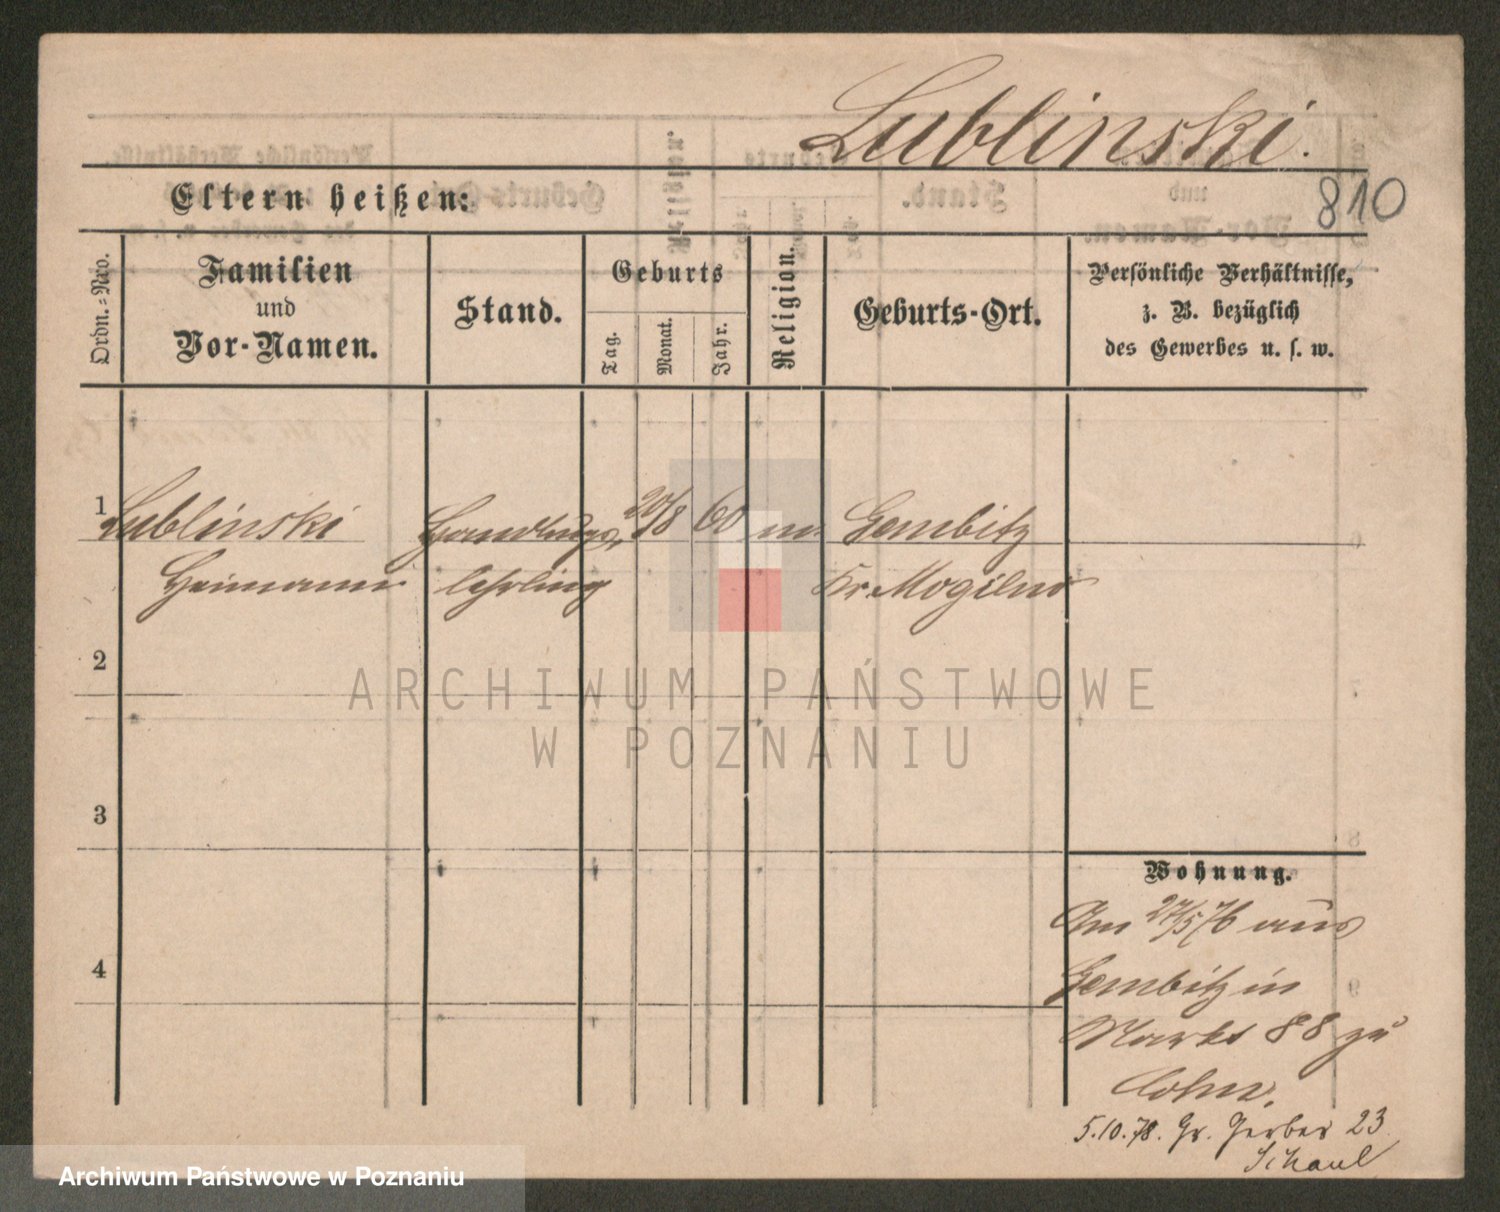 Lublinski.
810
Eltern heißen:
Ordn.-Nro.
Familien
und
Vor-Namen.
Stand.
Geburts
Tag.
Monat.
Jahr.
Religion.
Geburts-Ort.
Persönliche Verhältnisse,
z. B. bezüglich
des Gewerbes u. s. w.
1
Lublinski Handlugs 20/8 60 m. Gembitz
Heimann lehrling Kr. Mogilno
2
3
4
Wohnung.
Am 27/5 76 aus
Gembitz in
Markt 88 zu
Cohn.
5.10.78. Gr. Gerber 23
Schaul
ARCHIWUM PAŃSTWOWE
W POZNANIU
Archiwum Państwowe w Poznaniu